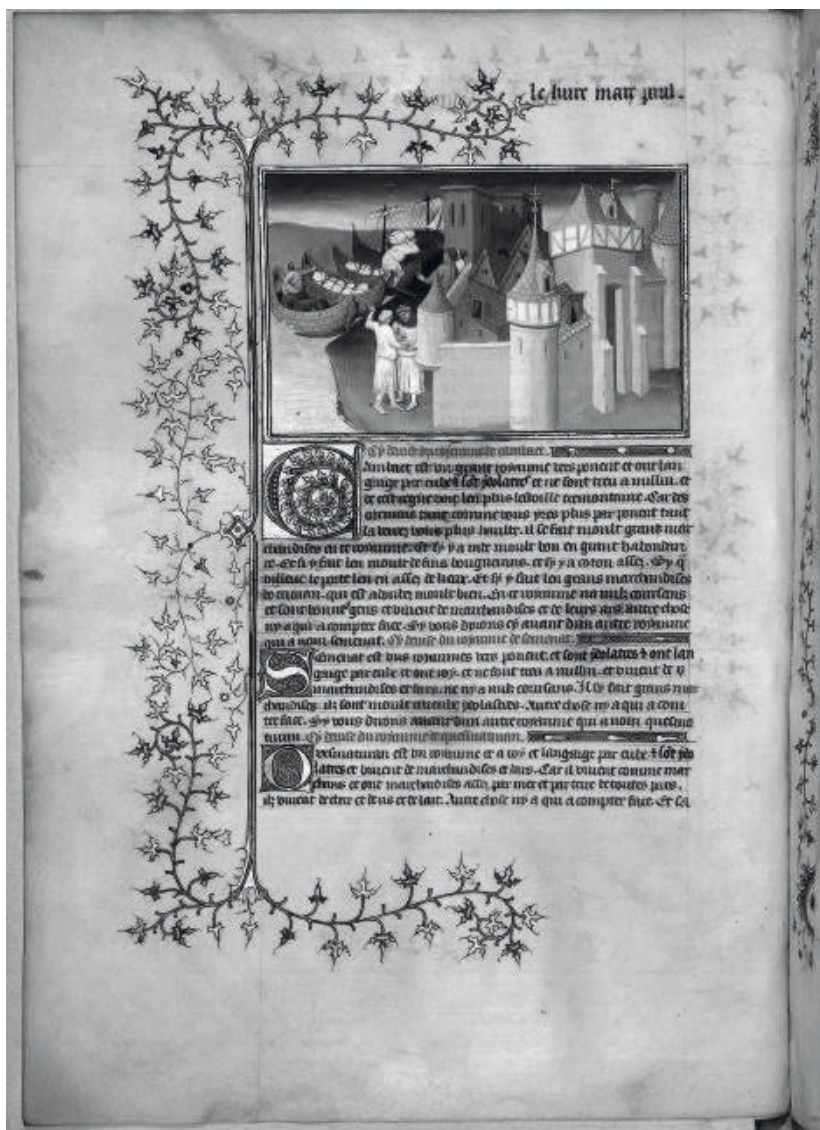 le liure marc paul.
Cy deuise du royaume de cambaet.
Cambaet est un grant royaume vers ponent et ont lan
guage par eulx et sont ydolatres et ne sont treu a nullui. et
de cest regne voit len plus lestoille tremontaine. Car des
or en auant tant comme vous yres plus par ponent tant
la verres vous plus haulte. il se fait moult grant mar
chandises en ce royaume. Et sy y a inde moult bon en grant habondan
ce. Et si y fait len moult de fins bouguerans. et sy y a coton asses. Sy q
dillieuc le porte len en asses de lieux. Et si y fait len grans marchandises
de cuirien. qui est adoube moult bien. En ce royaume na nulz coursaus
et sont bonne gens et viuent de marchandises et de leurs ars. autre chose
ny a qui a compter face. Sy vous dirons cy auant dun autre royaume
qui a nom semenat. Cy deuise du royaume de semenat.
Semenat est uns royaumes vers ponent. et sont ydolatres et ont lan
guage par eulx et ont roy. et ne sont treu a nullui. et viuent de
marchandises et ne ny a nulz coursaus. Il sy fait grans mar
chandises. ilz sont moult cruculz ydolastres. Autre chose ny a qui a com
ter face. Sy vous dirons auant dun autre royaume qui a nom quesmo
turan. Cy deuise du royaume de quesmaturan.
Quesmaturan est un royaume et a roy et language par eulx et sont ydo
latres et viuent de marchandises et dars. Car il viuent comme mar
chans et ont marchandises asses par mer et par terre de toutes pars.
ilz viuent de char et de ris et de lait. Autre chose ny a qui a compter face. Et sa